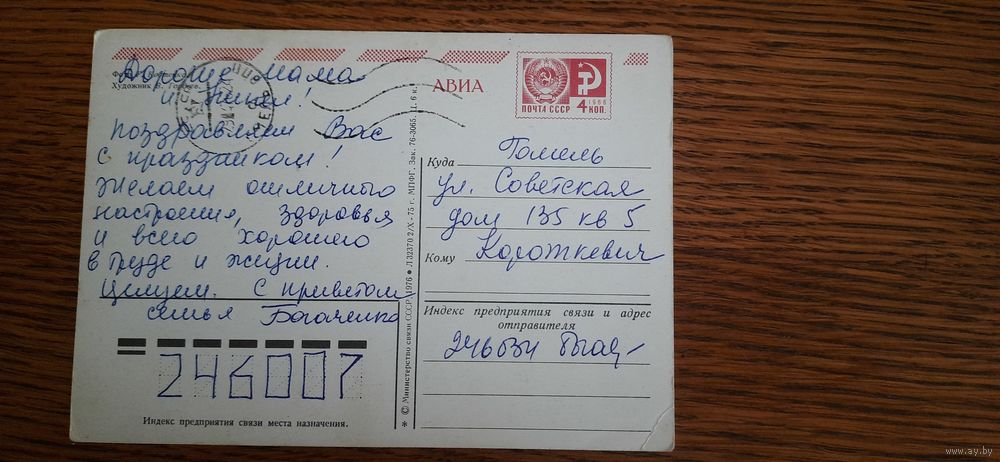 Художник
Дорогие мама
и
поздравляем Вас
с праздником!
Желаем отличного
настроения, здоровья
и всего хорошего
в труде и жизни.
Целуем. С приветом
семья Богаченко
246007
Индекс предприятия связи места назначения.
* © Министерство связи СССР, 1976 ● Л 32370 2/X-75 г. МПФГ. Зак. 76-3065. Ц. 6 к.
АВИА
ПОЧТА СССР 4 КОП.
1966
Куда Гомель
ул. Советская
дом 135 кв 5
Кому Короткевич
Индекс предприятия связи и адрес
отправителя
www.ay.by